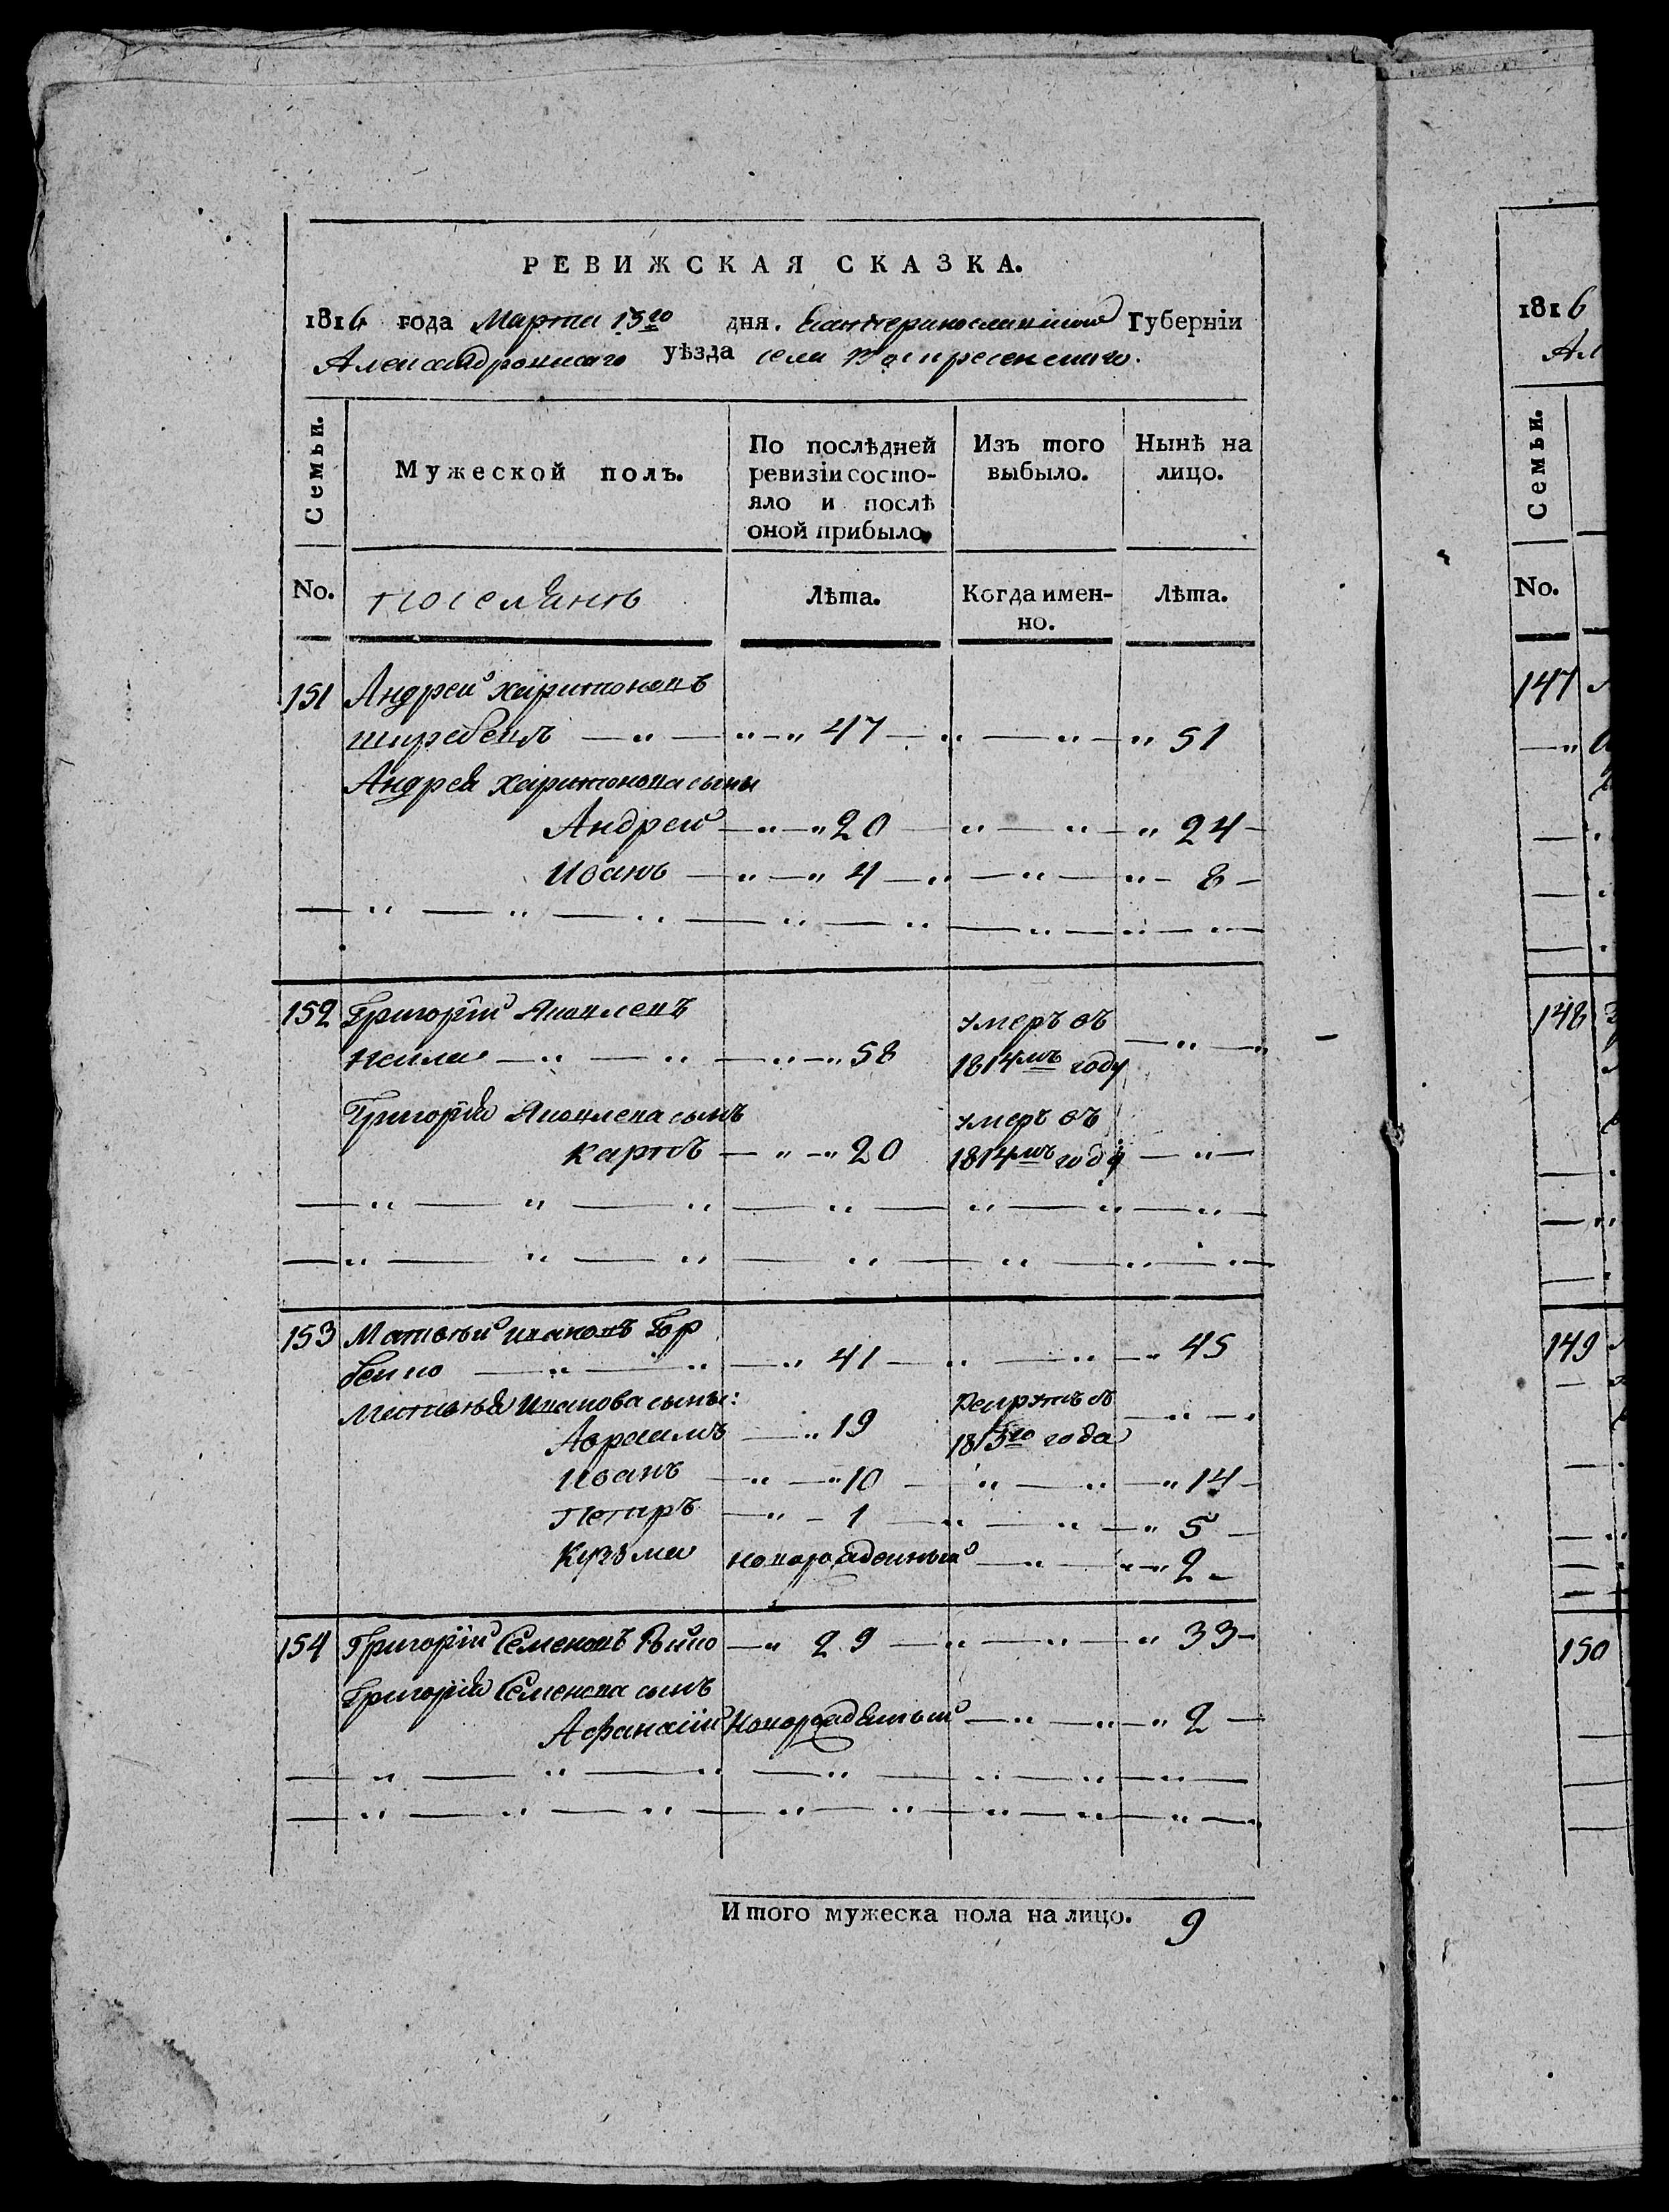 РЕВИЖСКАЯ СКАЗКА.
1816 года Марта 15го дня. Екатеринославской Губернїи
Александровскаго уѣзда села Воскресенскаго.
Семьи.
Мужеской полъ.
По послѣдней ревизїи состо-
яло и послѣ
оной прибыло.
Изъ того
выбыло.
Нынѣ на
лицо.
No.
Поселянъ
Лѣта.
Когда имен-
но.
Лѣта.
151 Андрей Харитоновъ
47 51
Андрея Харитонова сыны
Андрей 20 24
Иванъ 4 8
152 Григорїй Яковлевъ
58 умеръ въ
1814мъ году
Григорїя Яковлева сынъ
Карпъ 20 умеръ въ
1814мъ году
153 Матвѣй Исаковъ Гор
бенко 41 45
Матвѣя Исакова сыны:
Авраамъ 19 Рекрутъ съ
1813го года
Иванъ 10 14
Петръ 1 5
Кузьма новорожденный 2
154 Григорїй Семеновъ 29 33
Григорїя Семенова сынъ
Афанасїй Новорожденный 2
Итого мужеска пола на лицо. 9
1816
Ал
Семьи.
No.
147
148
149
150